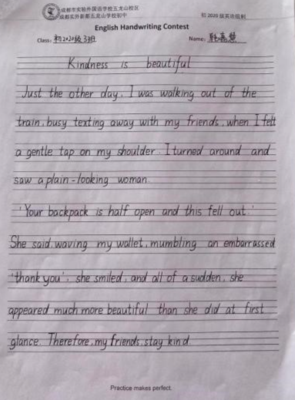 English Handwriting Contest
Class: Name:
Kindness is beautiful
Just the other day, I was walking out of the
train, busy texting away with my friends, when I felt
a gentle tap on my shoulder. I turned around and
saw a plain-looking woman.
'Your backpack is half open and this fell out.'
She said waving my wallet, mumbling an embarrassed
'thank you', she smiled, and all of a sudden, she
appeared much more beautiful than she did at first
glance. Therefore, my friends, stay kind
Practice makes perfect.